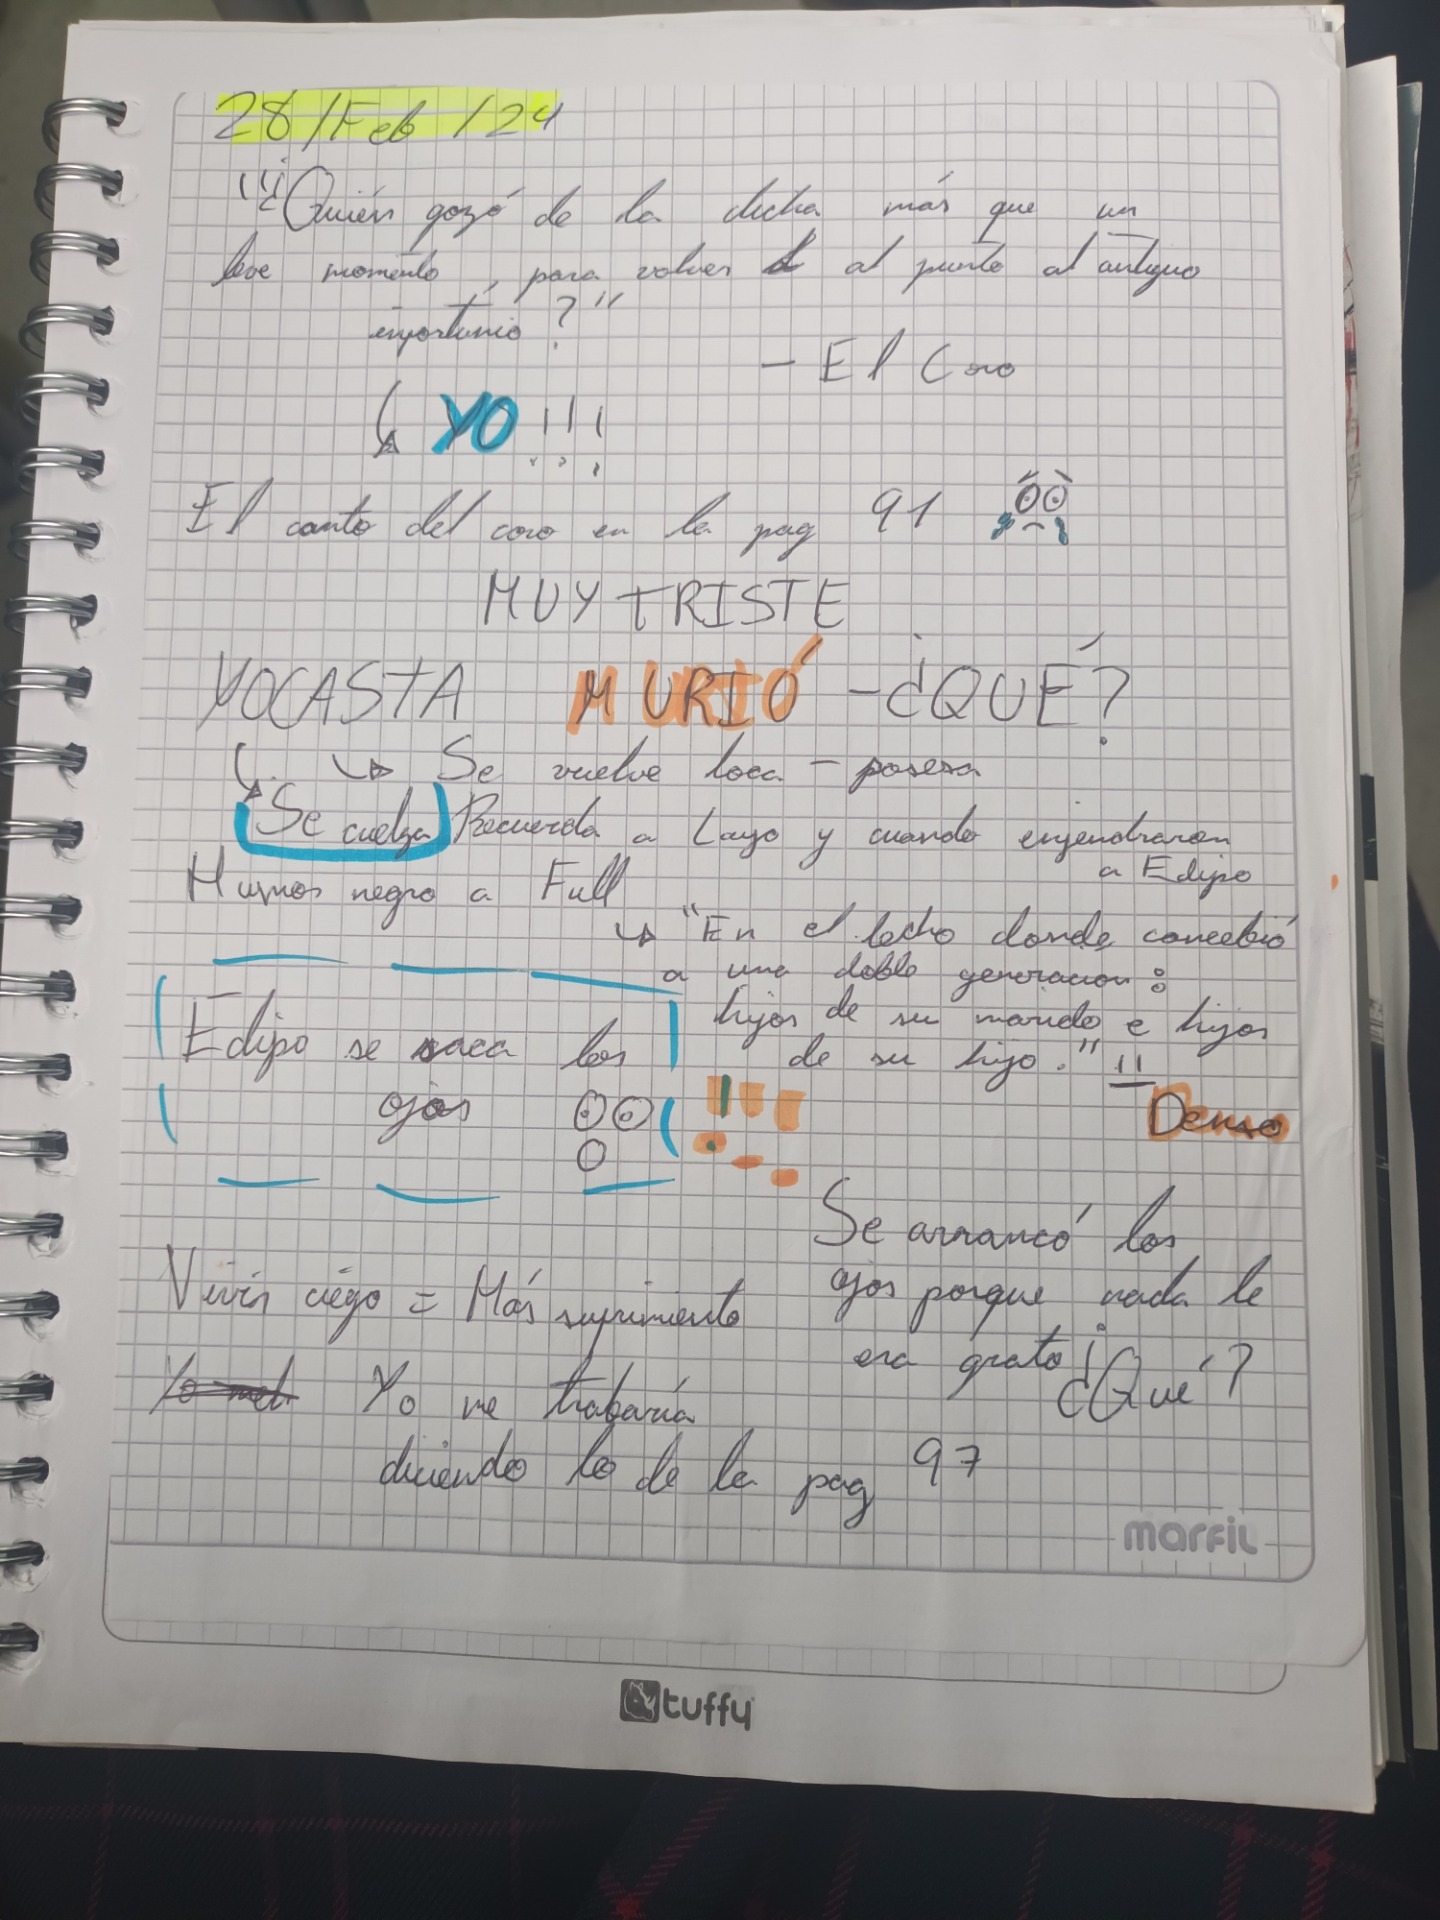 28/Feb/24
"¿Quién gozó de la dicha más que un
leve momento, para volver al punto al antiguo
infortunio?"
- El Coro
↳ YO !!!
El canto del coro en la pag 91
MUY TRISTE
YOCASTA MURIÓ - ¿QUÉ?
↳ Se vuelve loca - posesa
↳ Se cuelga Recuerda a Layo y cuando engendraron
a Edipo
Humor negro a Full
↳ "En el lecho donde concebió
a una doble generacion:
hijos de su marido e hijos
de su hijo." !!
Denso
Edipo se saca los
ojos
!!!
Se arrancó los
ojos porque nada le
era grato ¿Qué?
Vivir ciego = Más sufrimiento
Yo me trabaría
diciendo lo de la pag 97
marfil
tuffy